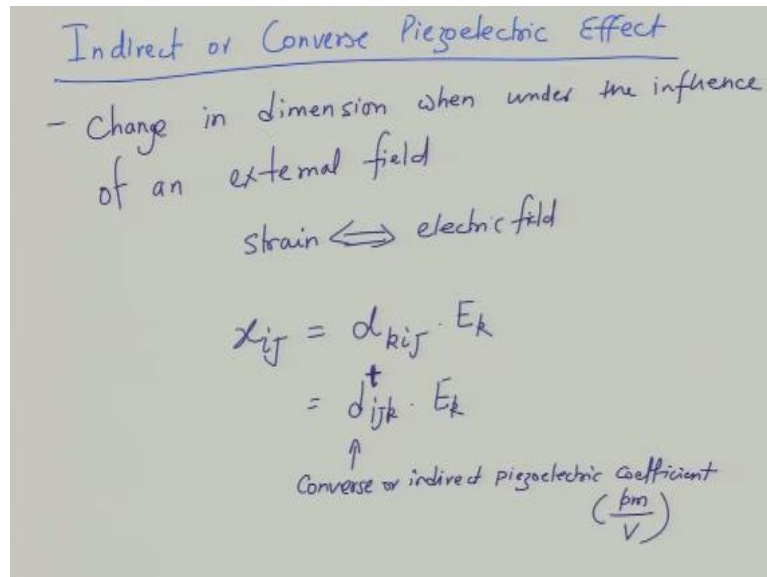 Indirect or Converse Piezoelectric Effect
- Change in dimension when under the influence
of an external field
strain ⟺ electric field
x_ij = d_kij · E_k
= d^t_ijk · E_k
↑
Converse or indirect piezoelectric coefficient
(pm/V)